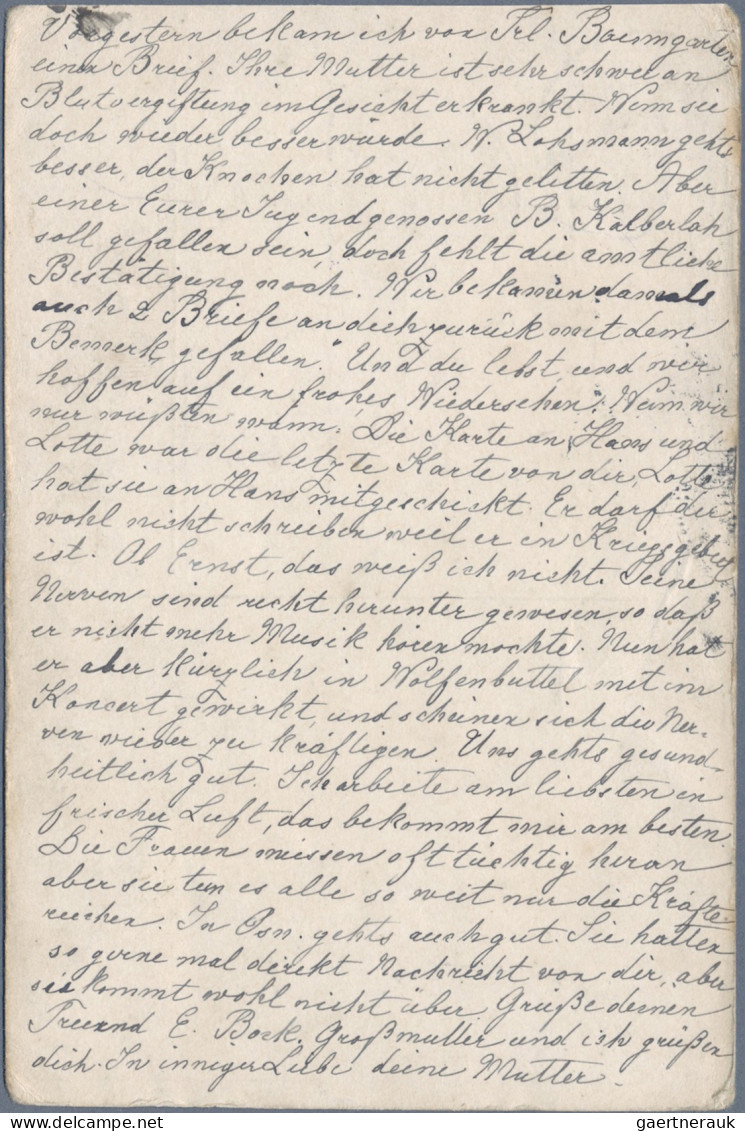 Vorgestern bekam ich von Frl. Baumgarten
einen Brief. Ihre Mutter ist sehr schwer an
Blutvergiftung im Gesicht erkrankt. Wenn sie
doch wieder besser würde. W. Lohsmann gehts
besser, der Knochen hat nicht gelitten. Aber
einer Eurer Jugendgenossen B. Kalberlah
soll gefallen sein, doch fehlt die amtliche
Bestätigung noch. Wir bekamen damals
auch 2 Briefe an dich zurück mit dem
Bemerk „gefallen." Und du lebst und wir
hoffen auf ein frohes Wiedersehen". Wenn wir
nur wüßten wann. Die Karte an Hans und
Lotte war die letzte Karte von dir, Lotte
hat sie an Hans mitgeschickt. Er darf dir
wohl nicht schreiben weil er in Kriegsgebiet
ist. Ob Ernst, das weiß ich nicht. Seine
Nerven sind recht herunter gewesen, so daß
er nicht mehr Musik hören mochte. Nun hat
er aber kürzlich in Wolfenbüttel mit im
Koncert gewirkt, und scheinen sich die Ner-
ven wieder zu kräftigen. Uns gehts gesund-
heitlich gut. Ich arbeite am liebsten in
frischer Luft, das bekommt mir am besten.
Die Frauen müssen oft tüchtig heran
aber sie tun es alle so weit nur die Kräfte
reichen. In Osn. gehts auch gut. Sie hätten
so gerne mal direkt Nachricht von dir, aber
sie kommt wohl nicht über. Grüße deinen
Freund E. Bock. Großmutter und ich grüßen
dich. In inniger Liebe deine Mutter.
gaertnerauk